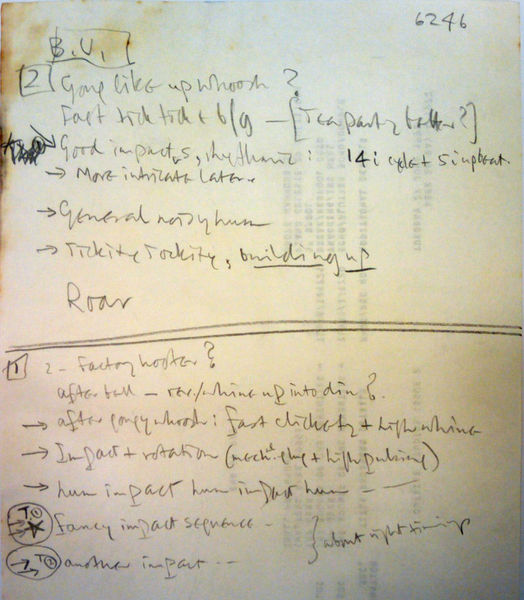 6246
B.U.
2 Gong like up whoosh ?
Fast tick tick + b/g — [Tea party better?]
Good impacts, rhythmic : 14 i cycle + 5 impact.
→ More intricate later.
→ General noisy hum
→ Tickity Tockity, building up
Roar
1 2 - Factory hooter ?
after ball — rev./whine up into din ?.
→ after gongy whoosh : fast clickety + high whine
→ Impact + rotation (mech. + high pulsing)
→ hum impact hum impact hum — —
→ T② Fancy impact sequence - } about right timings
→ T② another impact --